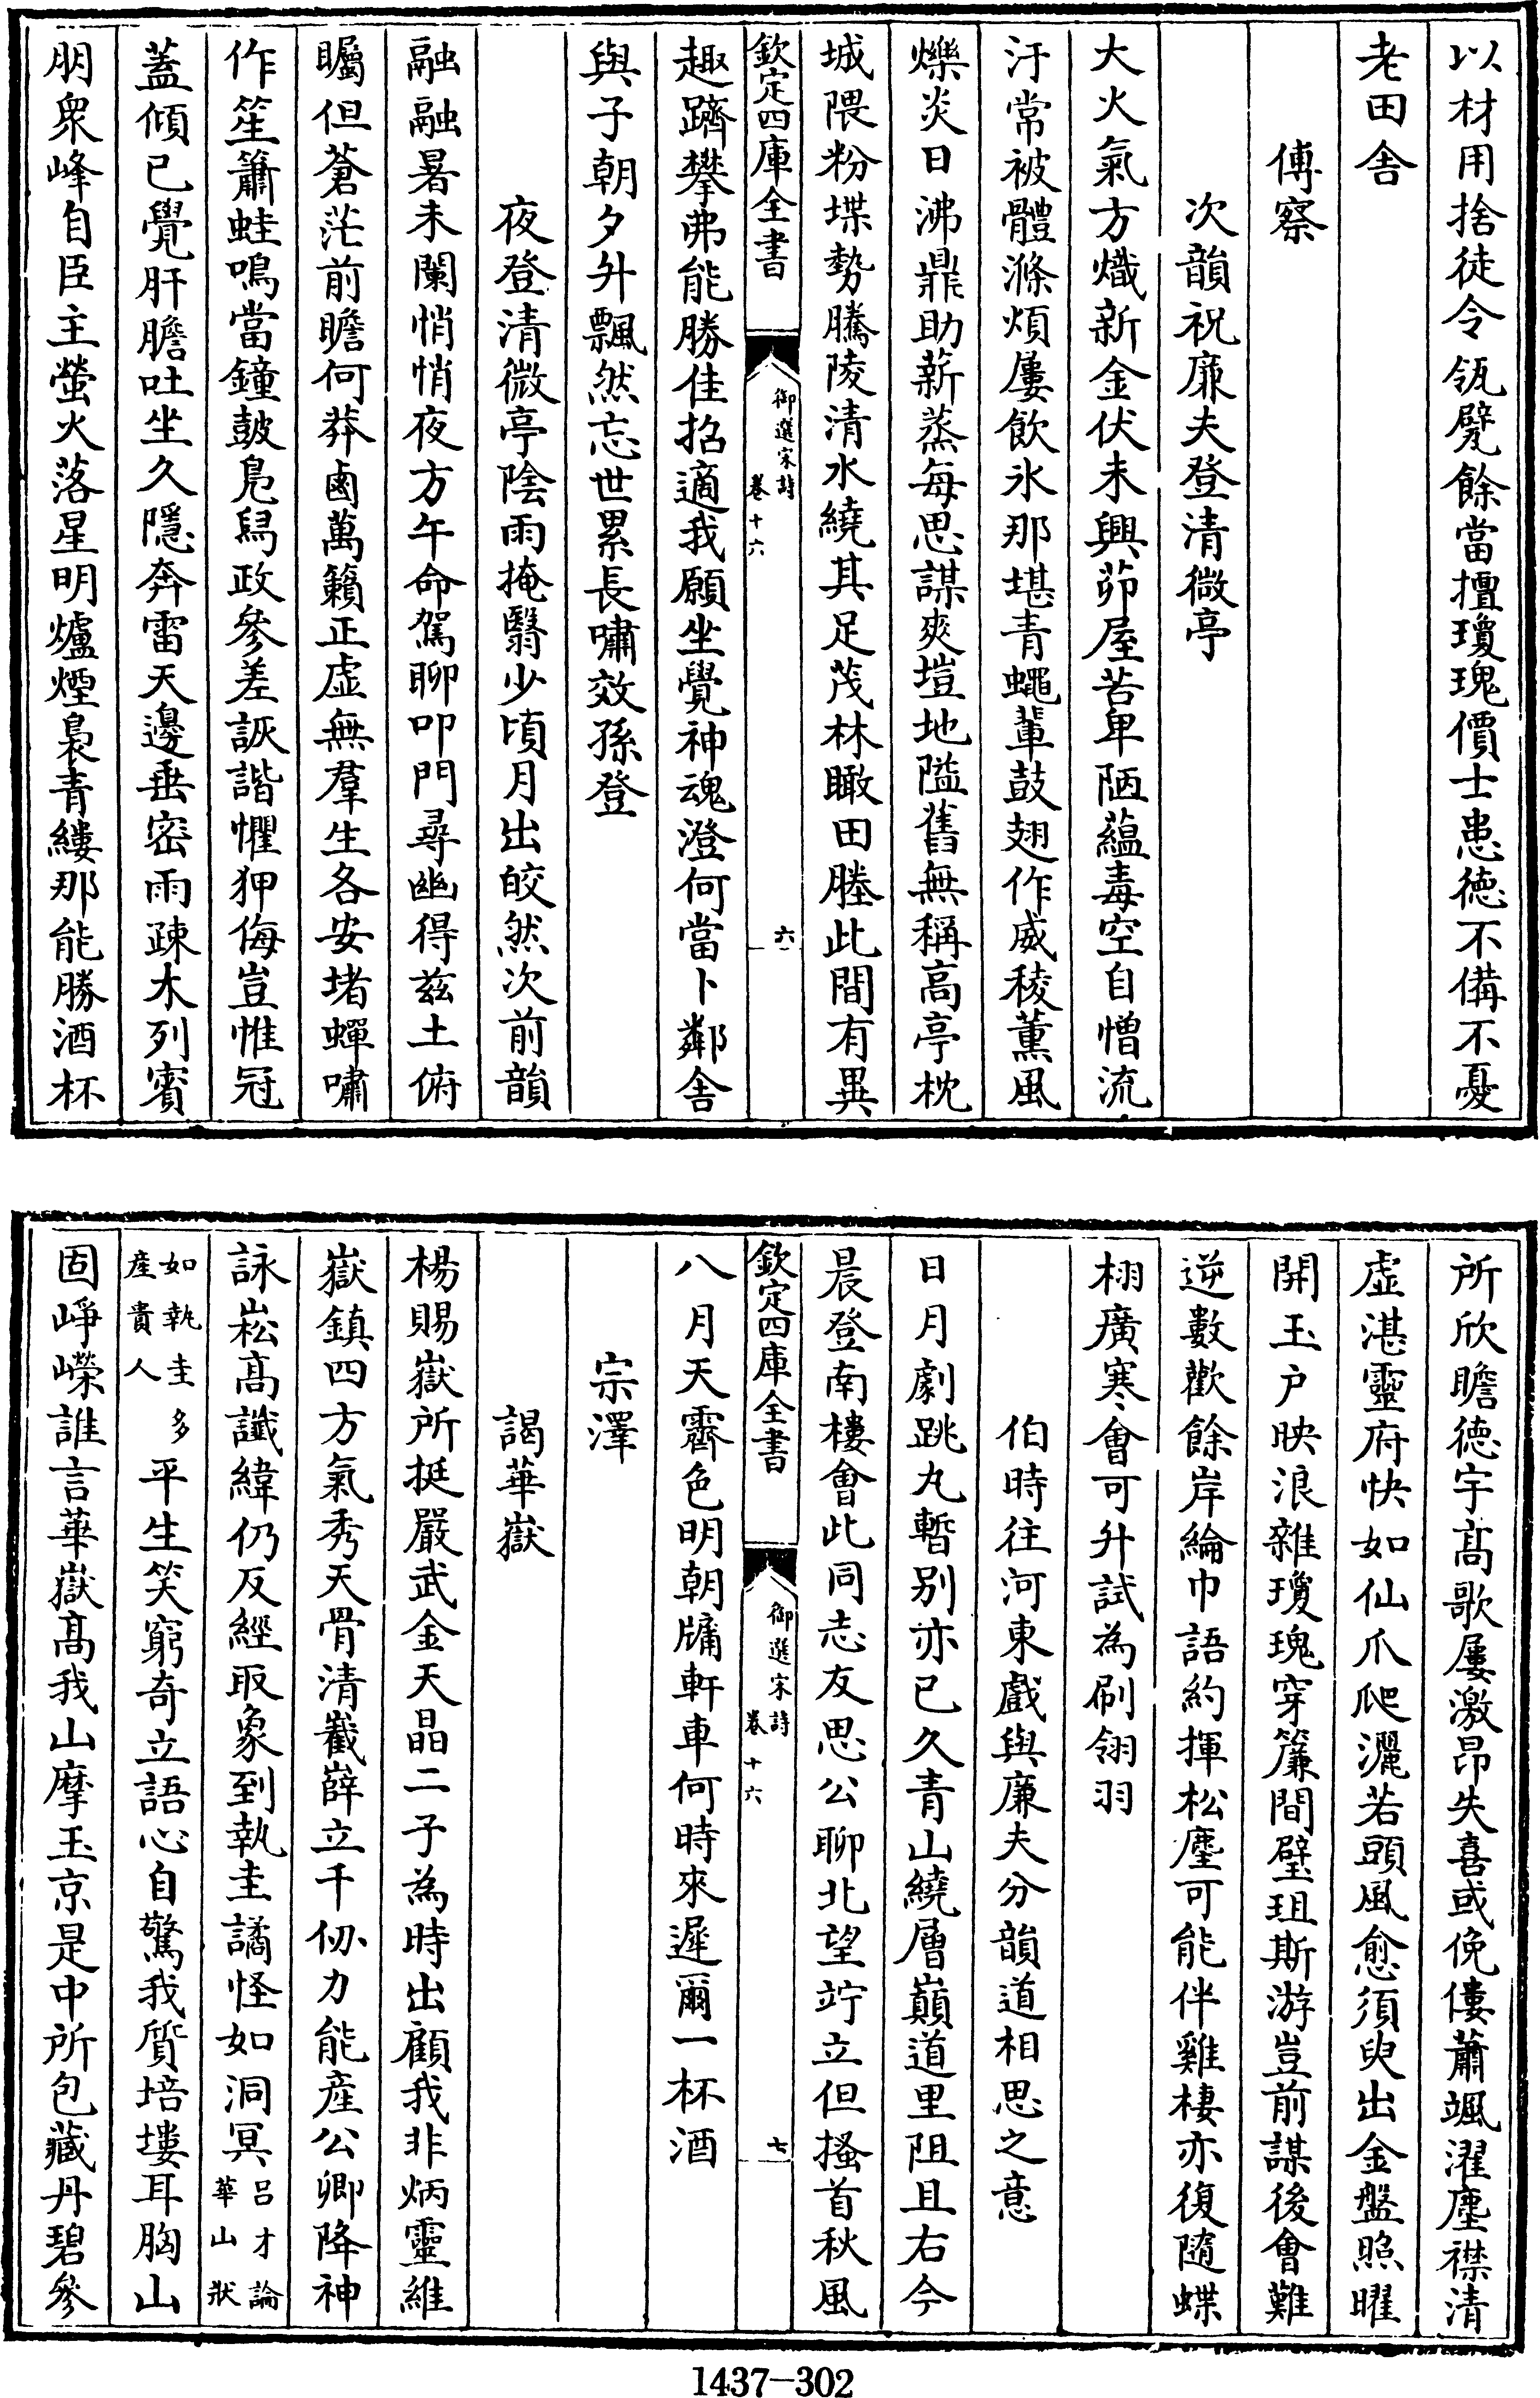 以材用捨徒令瓴甓餘當擅瓊瑰價士患徳不備不憂
老田舍
傅察
次韻祝廉夫登清微亭
大火氣方熾新金伏未興茆屋苦卑陋蘊毒空自憎流
汗常被體滌煩屢飲氷那堪青蠅輩鼓翅作威稜薫風
爍炎日沸鼎助薪蒸每思謀爽塏地隘舊無稱高亭枕
城隈粉堞勢騰陵清水繞其足茂林瞰田塍此間有異
欽定四庫全書
御選宋詩
卷十六
六
趣躋攀弗能勝佳招適我願坐覺神魂澄何當卜鄰舍
與子朝夕升飄然忘世累長嘯效孫登
夜登清微亭陰雨掩翳少頃月出皎然次前韻
融融暑未闌悄悄夜方午命駕聊叩門尋幽得兹土俯
矚但蒼茫前瞻何莽鹵萬籟正虛無羣生各安堵蟬嘯
作笙簫蛙鳴當鐘鼓鳬舄政參差詼諧懼狎侮豈惟冠
蓋傾已覺肝膽吐坐久隱奔雷天邊垂密雨疎木列賓
朋衆峰自臣主螢火落星明爐煙裊青縷那能勝酒杯
所欣瞻徳宇高歌屢激昂失喜或俛僂蕭颯濯塵襟清
虛湛靈府快如仙爪爬灑若頭風愈須臾出金盤照曜
開玉户映浪雜瓊瑰穿簾間璧珇斯游豈前謀後會難
逆數歡餘岸綸巾語約揮松麈可能伴雞棲亦復隨蝶
栩廣寒會可升試為刷翎羽
伯時往河東戲與廉夫分韻道相思之意
日月劇跳丸暫别亦已久青山繞層巔道里阻且右今
晨登南樓會此同志友思公聊北望竚立但搔首秋風
欽定四庫全書
御選宋詩
卷十六
七
八月天霽色明朝牖軒車何時來遲爾一杯酒
宗澤
謁華嶽
楊賜嶽所挺嚴武金天晶二子為時出顧我非炳靈維
嶽鎮四方氣秀天骨清巀嶭立千仞力能産公卿降神
詠崧高讖緯仍反經取象到執圭譎怪如洞冥吕才論華山狀
如執圭多産貴人平生笑窮奇立語心自驚我質培塿耳胸山
固崢嶸誰言華嶽高我山摩玉京是中所包藏丹碧參
1437—302